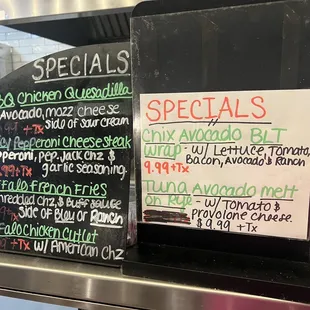 SPECIALS
BQ Chicken Quesadilla
Avocado, mozz cheese
side of sour cream
+Tx
Pepperoni Cheesesteak
pperoni, pep. Jack chz &
.99 +Tx garlic seasoning.
ffalo French Fries
hredded chz, & Buff sauce
side of Bleu or Ranch
falo Chicken Cutlet
+Tx w/ American chz
SPECIALS
Chix Avocado BLT
Wrap - w/ Lettuce, Tomato,
Bacon, Avocado & Ranch
9.99 +Tx
Tuna Avocado melt
on Rye - w/ Tomato &
Provolone cheese.
$9.99 +Tx